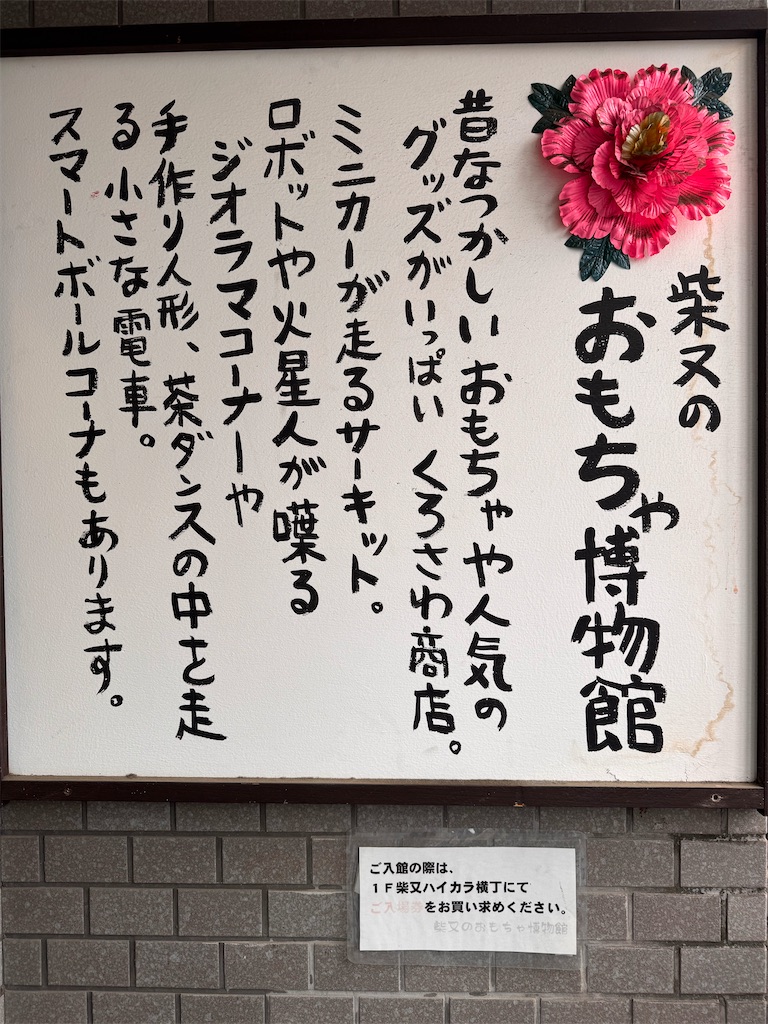 柴又の
おもちゃ博物館
昔なつかしいおもちゃや人気の
グッズがいっぱい くろさわ商店。
ミニカーが走るサーキット。
ロボットや火星人が喋る
ジオラマコーナーや
手作り人形、茶ダンスの中を走
る小さな電車。
スマートボールコーナもあります。
ご入館の際は、
1F柴又ハイカラ横丁にて
ご入場券をお買い求めください。
柴又のおもちゃ博物館